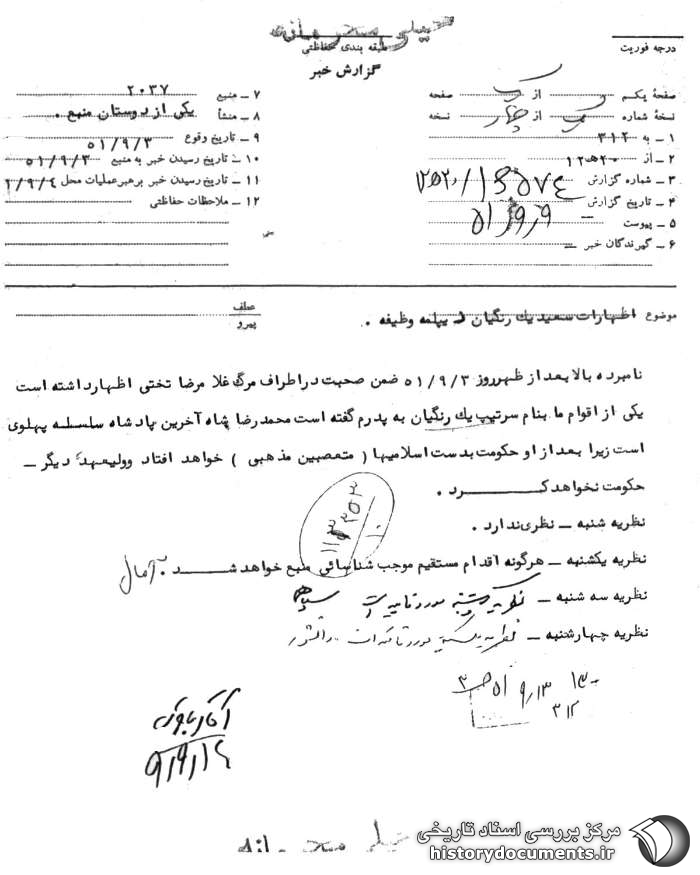 خیلی محرمانه
طبقه بندی حفاظتی
گزارش خبر
درجه فوریت
صفحهٔ یکم از یک صفحه
نسخهٔ شماره یک از چهار نسخه
۱ ـ به ۳۱۲
۲ ـ از ۲۰ هـ ۱۲
۳ ـ شماره گزارش
۴ ـ تاریخ گزارش
۵ ـ پیوست
۶ ـ گیرندگان خبر
۷ ـ منبع ۲۰۳۷
۸ ـ منشأ یکی از دوستان منبع .
۹ ـ تاریخ وقوع ۵۱/۹/۳
۱۰ ـ تاریخ رسیدن خبر به منبع ۵۱/۹/۳
۱۱ ـ تاریخ رسیدن خبر برهبر عملیات محل ۹/۴
۱۲ ـ ملاحظات حفاظتی
موضوع اظهارات سعید یك رنگیان دیپلمه وظیفه .
عطف
پیرو
نامبرده بالا بعد از ظهر روز ۵۱/۹/۳ ضمن صحبت در اطراف مرگ غلامرضا تختی اظهار داشته است
یکی از اقوام ما بنام سرتیپ یك رنگیان به پدرم گفته است محمد رضا شاه آخرین پادشاه سلسله پهلوی
است زیرا بعد از او حکومت بدست اسلامیها ( متعصبین مذهبی ) خواهد افتاد وولیعهد دیگر ـ
حکومت نخواهد کـــــرد .
نظریه شنبه ـ نظری ندارد .
نظریه یکشنبه ـ هرگونه اقدام مستقیم موجب شناسائی منبع خواهد شـــــد . آمال
نظریه سه شنبه ـ نظریه یکشنبه مورد تایید است
نظریه چهارشنبه ـ نظریه یکشنبه مورد تائید است
۳۱۲
۹/۹/۱۴
خیلی محرمانه
مرکز بررسی اسناد تاریخی
historydocuments.ir